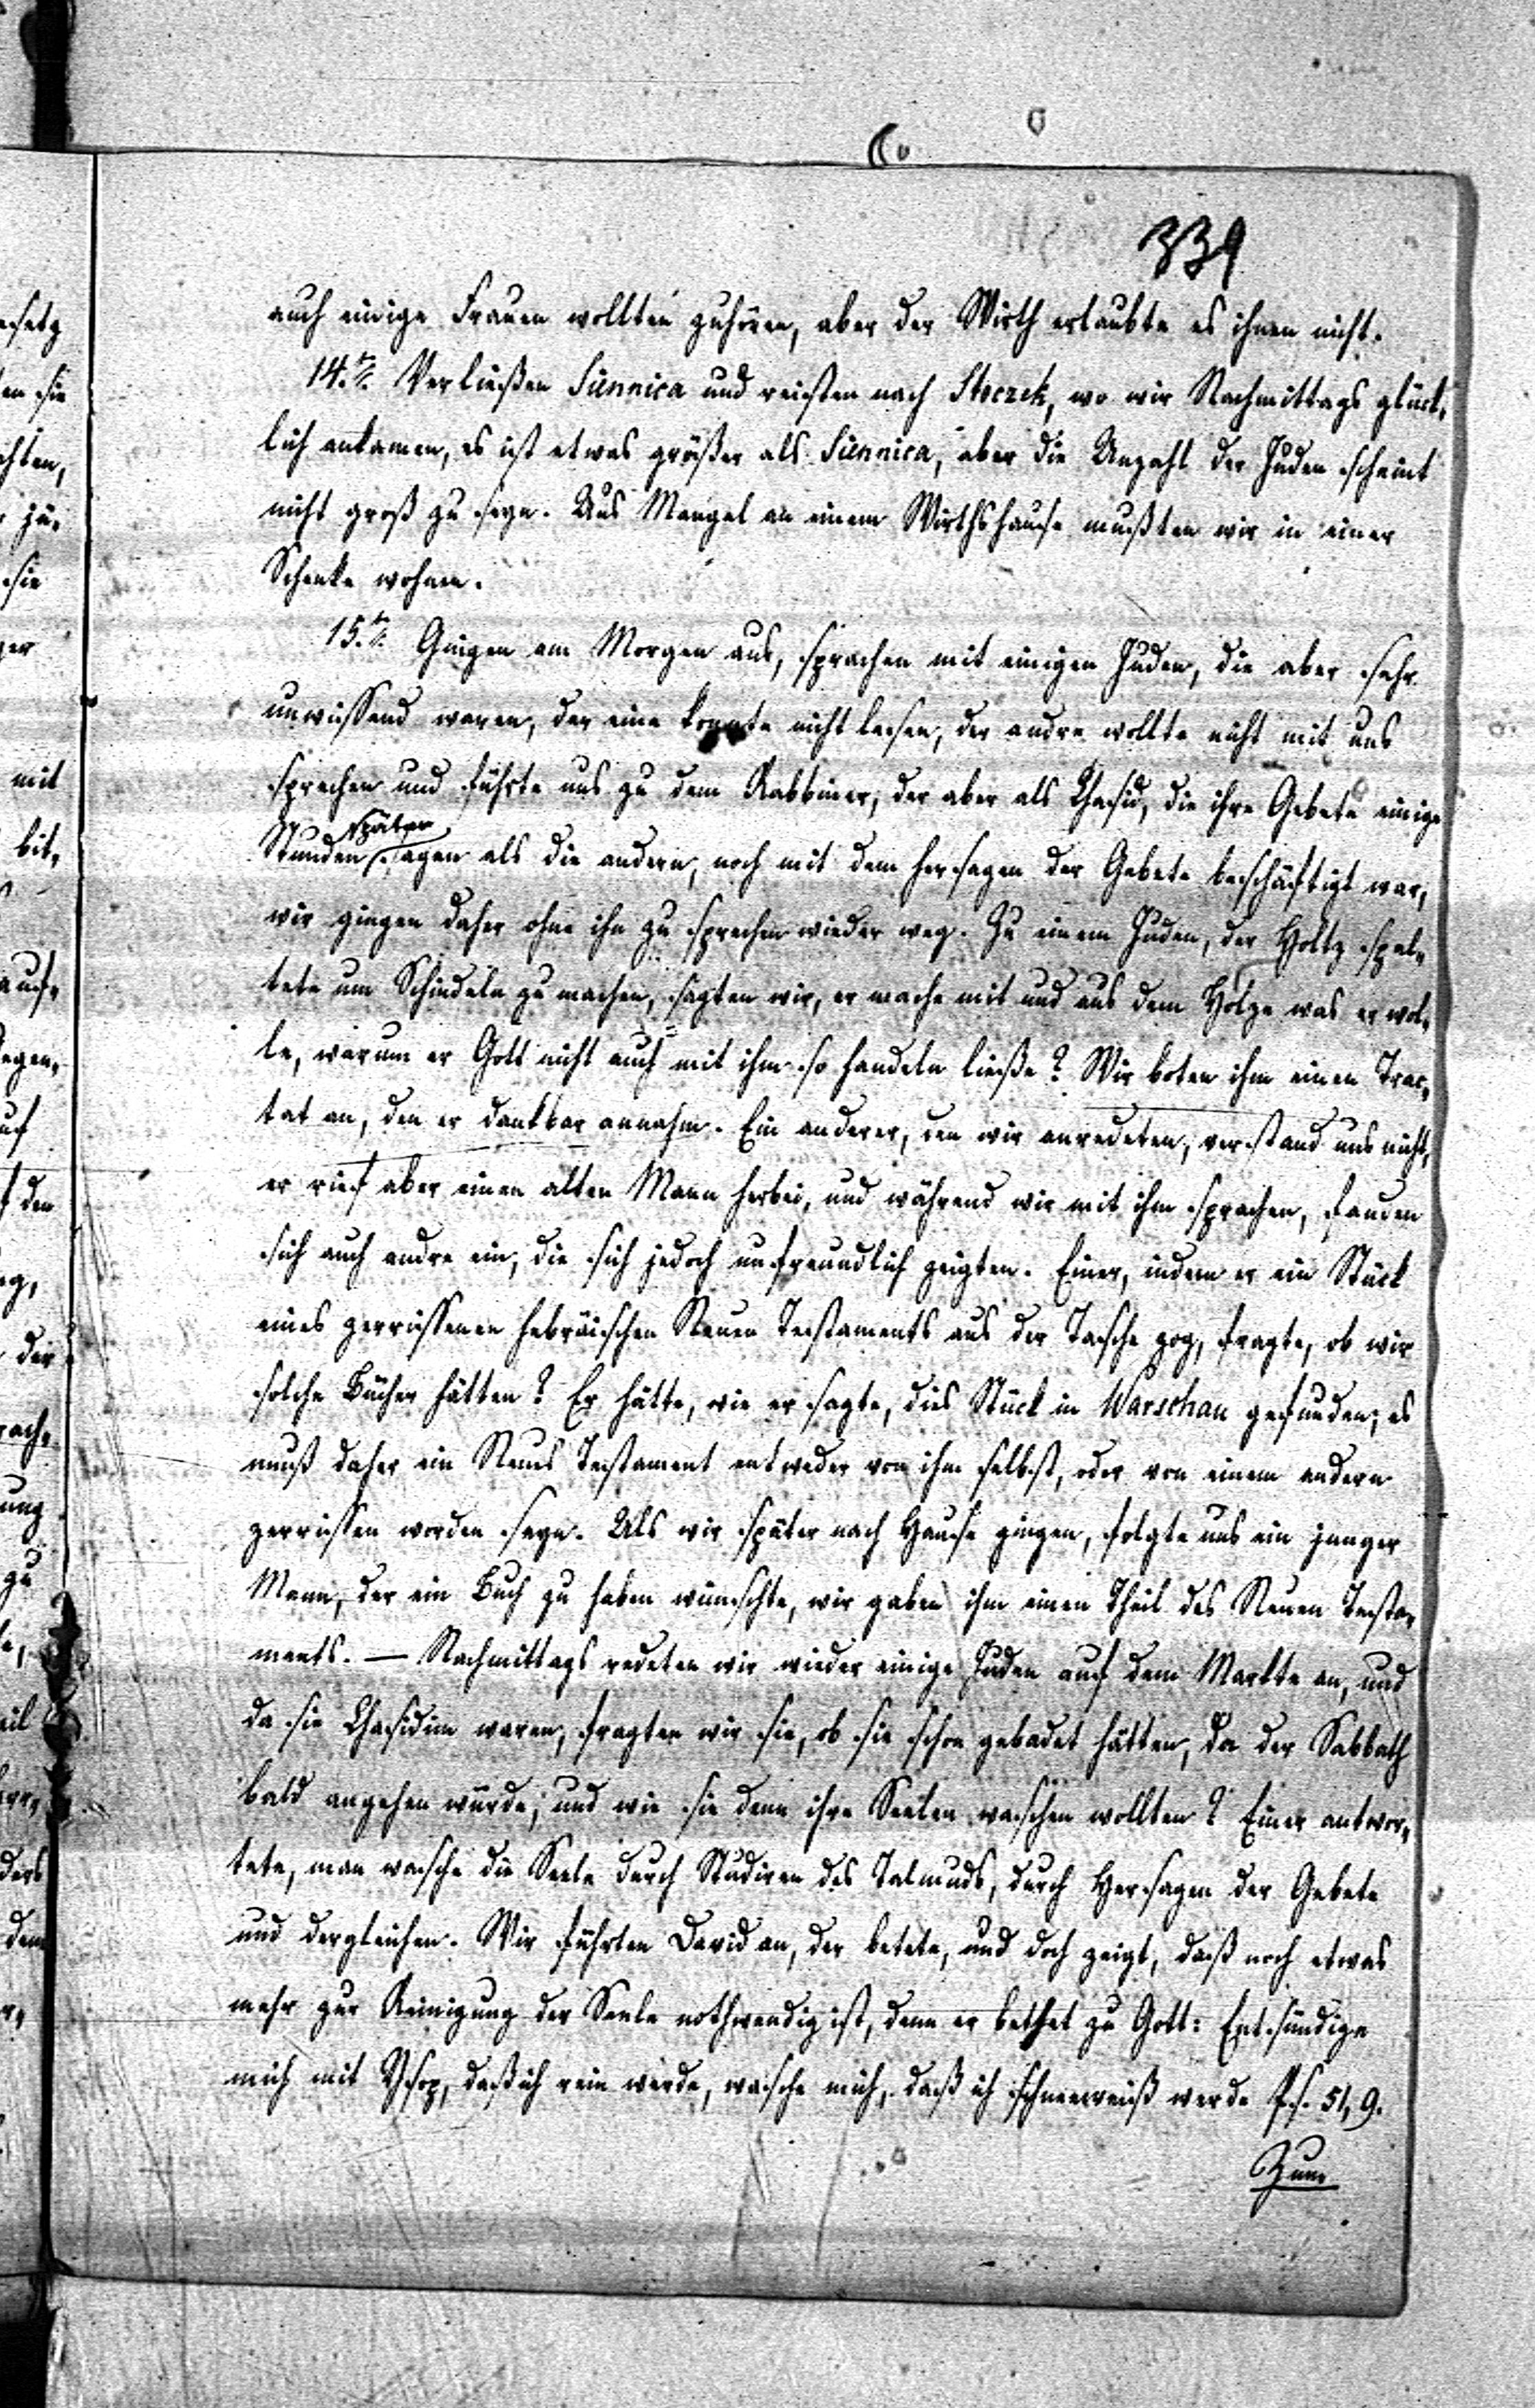 339
auch einige Frauen wollten zuhören, aber der Wirth erlaubte es ihnen nicht.
14.t. Verließen Siennica und reisten nach Stoczek, wo wir Nachmittags glück„
lich ankamen, es ist etwas größer als Siennica, aber die Anzahl der Juden scheint
nicht groß zu seyn. Aus Mangel an einem Wirthshause mußten wir in einer
Schenke wohnen.
15.t. Gingen am Morgen aus, sprachen mit einigen Juden, die aber sehr
unwissend waren, der eine konnte nicht lesen, der andre wollte nicht mit uns
sprechen und führte uns zu dem Rabbiner, der aber als Chasid, die ihre Gebete einige
Stunden später sagen als die andern, noch mit dem hersagen der Gebete beschäftigt war,
wir gingen daher ohne ihn zu sprechen wieder weg. Zu einem Juden, der Holtz spal„
tete um Schindeln zu machen, sagten wir, er mache mit und aus dem Holze was er wol„
le, warum er Gott nicht auch mit ihm so handeln ließe? Wir boten ihm einen Trac„
tat an, den er dankbar annahm. Ein anderer, den wir anredeten, verstand uns nicht,
er rief aber einen alten Mann herbei, und während wir mit ihm sprachen, fanden
sich auch andre ein, die sich jedoch unfreundlich zeigten. Einer, indem er ein Stück
eines zerrissenen hebräischen Neuen Testaments aus der Tasche zog, fragte, ob wir
solche Bücher hätten? Er hätte, wie er sagte, dies Stück in Warschau gefunden; es
muß daher ein Neues Testament entweder von ihm selbst, oder von einem andern
zerrissen worden seyn. Als wir später nach Hause gingen, folgte uns ein junger
Mann, der ein Buch zu haben wünschte, wir gaben ihm einen Theil des Neuen Testa„
ments. — Nachmittags redeten wir wieder einige Juden auf dem Markte an, und
da sie Chasidim waren, fragten wir sie, ob sie schon gebadet hätten, da der Sabbath
bald angehen würde, und wie sie denn ihre Seelen waschen wollten? Einer antwor„
tete, man wasche die Seele durch Studiren des Talmuds, durch Hersagen der Gebete
und dergleichen. Wir führten David an, der betete, und doch zeigt, daß noch etwas
mehr zur Reinigung der Seele nothwendig ist, denn er bethet zu Gott: Entsündige
mich mit Ysop, daß ich rein werde, wasche mich, daß ich schneeweiß werde Ps. 51, 9.
Zum